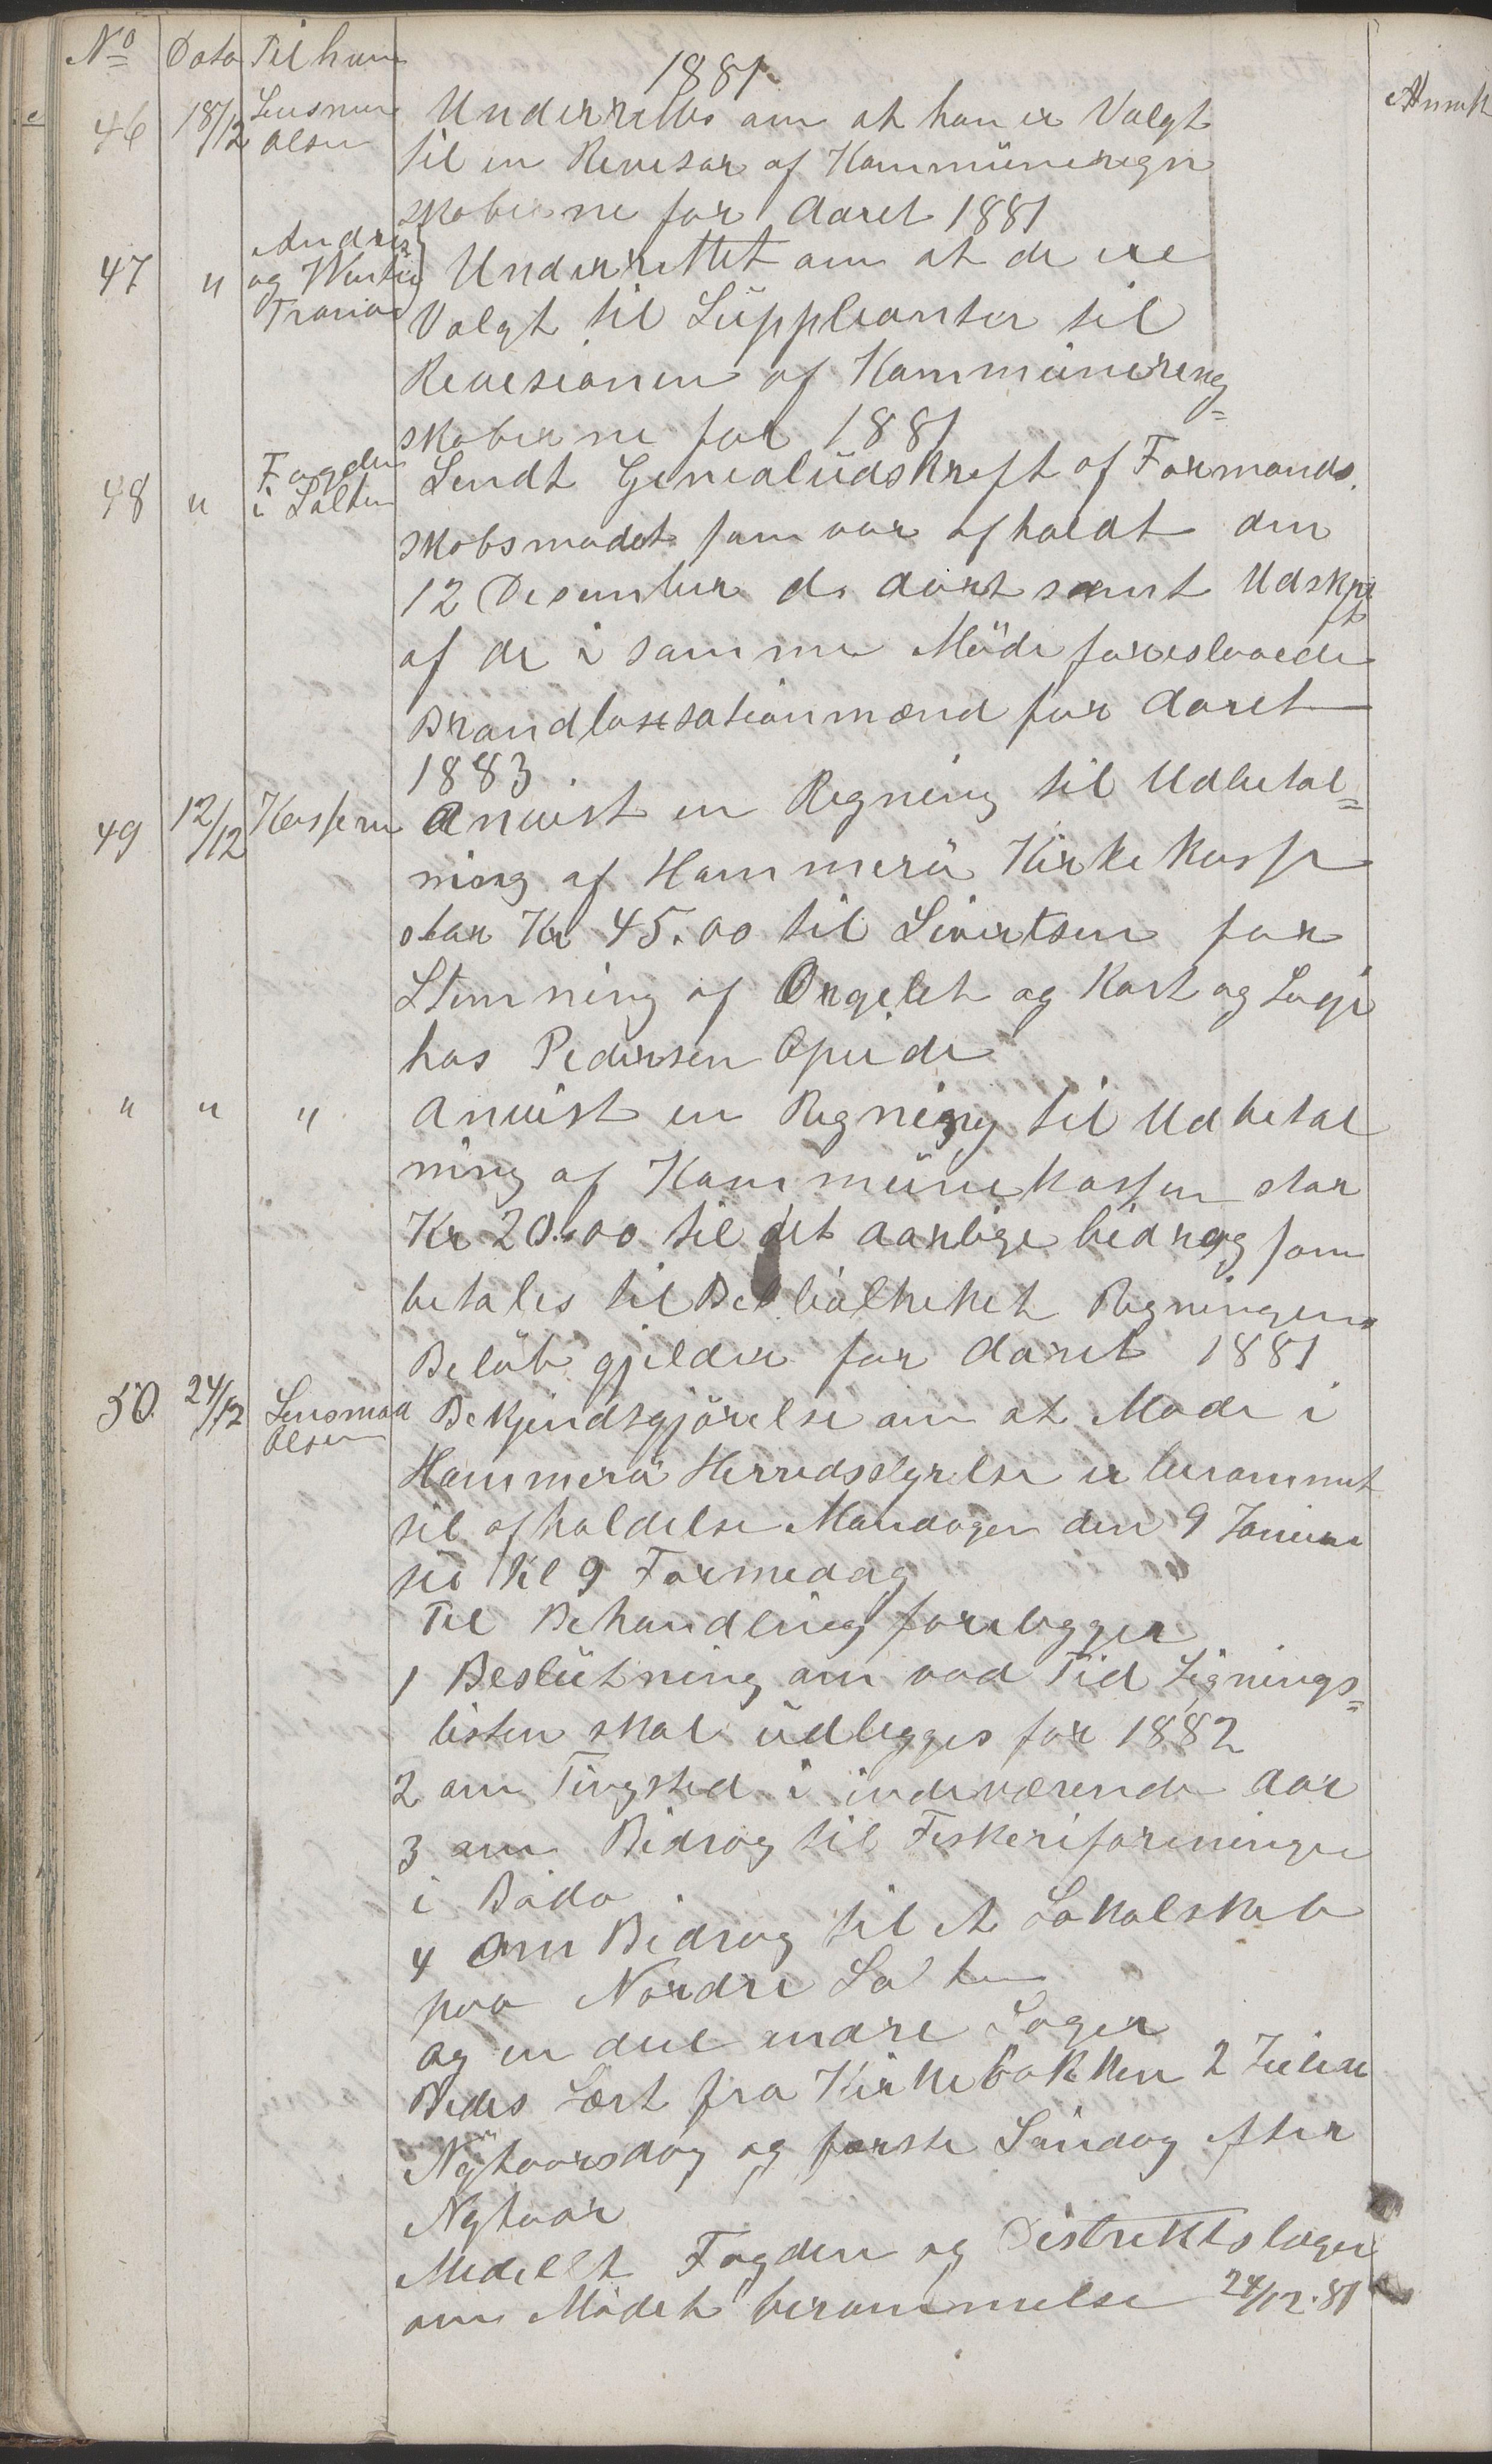 No Dato Til hvem Anmk
1881
46 18/12 Lensman Olsen Underrettes om at han er Valgt
til en Revisor af Kommüneregn
skaberne for Aaret 1881
47 " Andreas og Martin Tranøe Underrettet om at de ere
Valgt til Süppleanter til
Revisionen af Kommünereng=
skaberne for 1881
48 " Fogden i Salten Sendt Genralüdskreft af Formands
skabsmødet som var afholdt den
12 Desember d. aart samt Udskrift
af de i samme Möde foreslaaede
Brandtaxsationmænd for Aaret
1883.
49 12/12 Kasseren Anvist en Regning til Udbetal=
ning af Hammerö Kirkekasse
stor Kr 45.00 til Sivertsen for
Stemning af Orgelet og Kost og Logi
hos Pedersen Opeide
" " " Anvist en Regning til Udbetal
ning af Kommünekassen stor
Kr 20.00 til det aarlige bidrag som
betales til Bibliotheket Regningens
Beløb gjelder for Aaret 1881
50. 24/12 Lensmad Olsen Bekjendsgjörelse om at Møde i
Hammerö Herredsstyrelse er berammet
til afholdelse Mandagen den 9 Januar
Kl 9 Formedag
Til Behandling forelegger
1 Beslütning om vad Tid Lignings=
listen skal üdlegges for 1882
2 om Tingsted i indeværende Aar
3 om Bidrag til Fiskeriforeningen
i Bodø
4 Om Bidrag til et Lokalskab
paa Nordre Salten
og en deel andre Sager
Bedes Læst fra Kirkebakken 2 Juledag
Nytaarsdag og første Søndag efter
Nytaar
Medellt Fogden og Distriktslægen
om Mødet berammelse 24/12.81